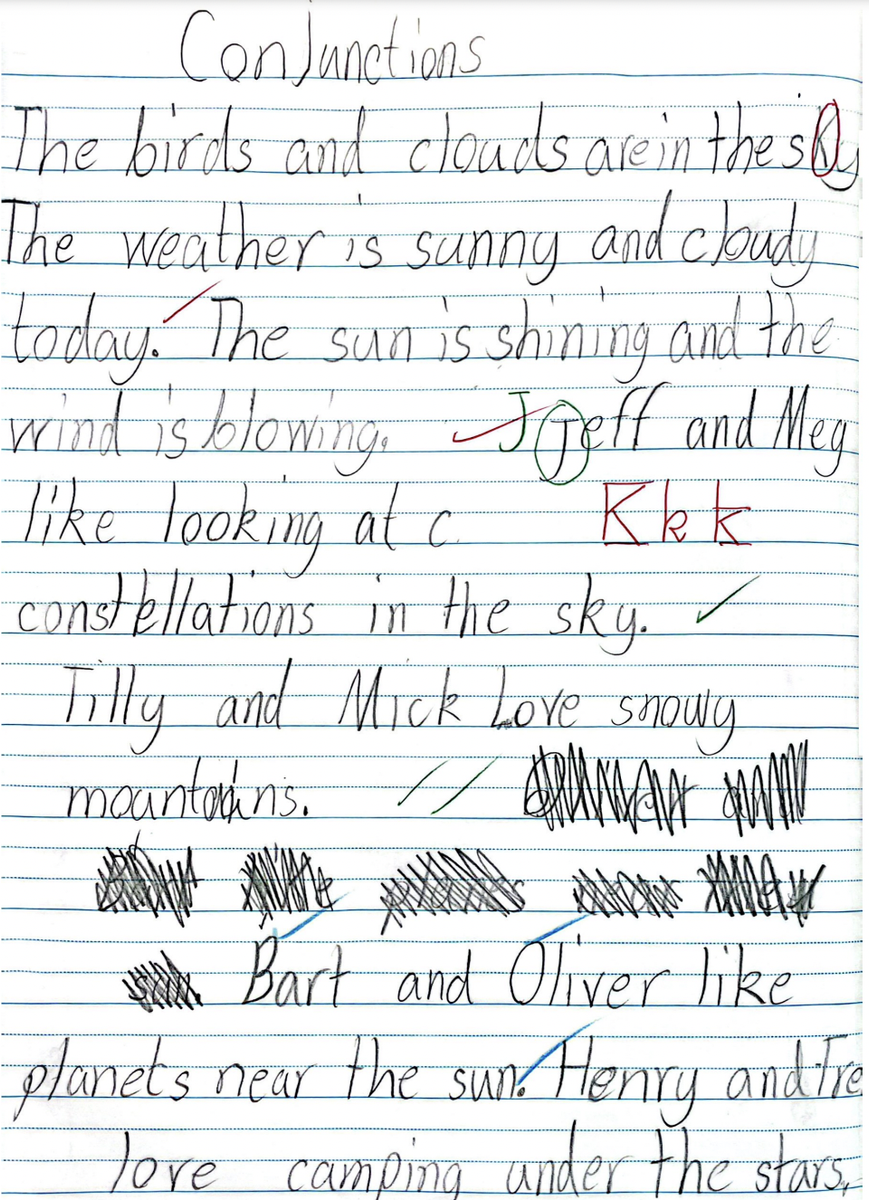 ConJunctions
The birds and clouds are in the sky
The weather is sunny and cloudy
today. The sun is shining and the
wind is blowing. J Jeff and Meg
like looking at c K k k
constellations in the sky.
Tilly and Mick Love snowy
mountains.
Bart and Oliver like
planets near the sun. Henry and Tre
love camping under the stars.